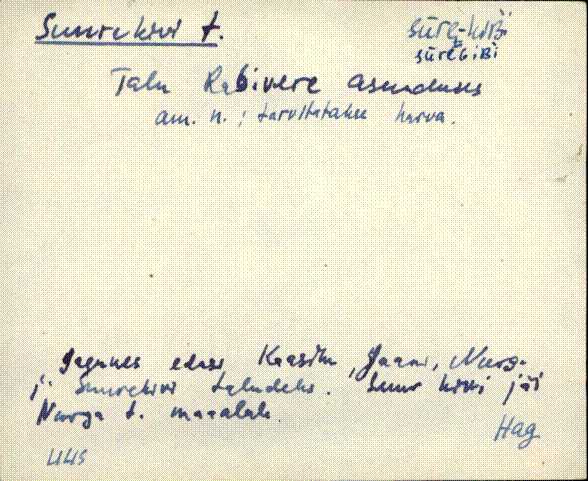 Suurekivi t.
sūre-kiʙi
sūreɢiʙi
Talu Rabivere asunduses
am. n.; tarvitatakse harva.
Jagunes edasi Kaasiku, Jaani, Nurga
j. Suurekivi taludeks. Suur kivi jäi
Nurga t. maaalale.
Hag
UUS